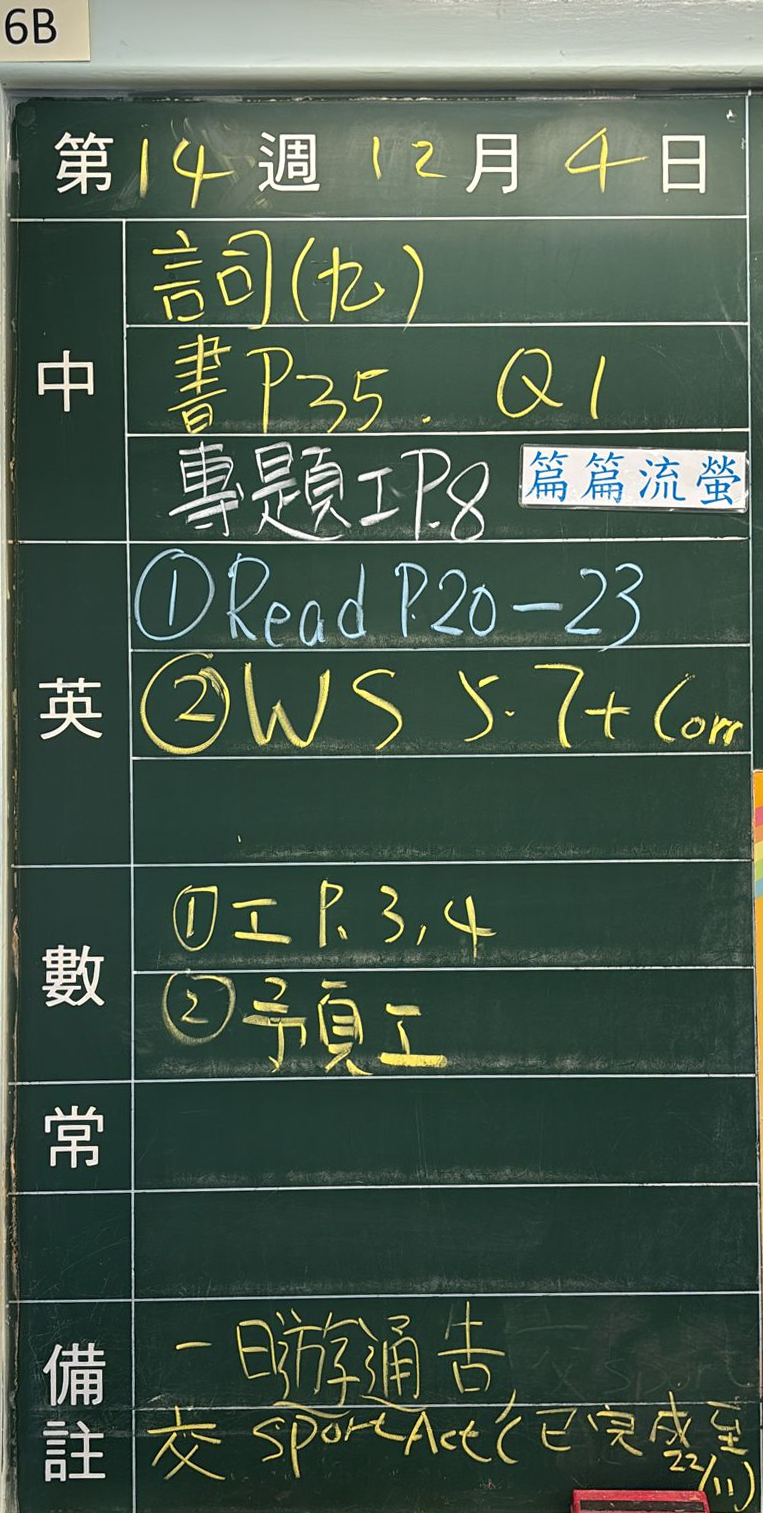 6B
第14週 12月4日
中
詞(九)
書P35. Q1
專題工P.8 篇篇流螢
英
①Read P.20-23
②WS 5.7+Corr
數
①工 P. 3, 4
②予頁工
常
備註
一日遊通告
交 sport Act (已完成至22/11)